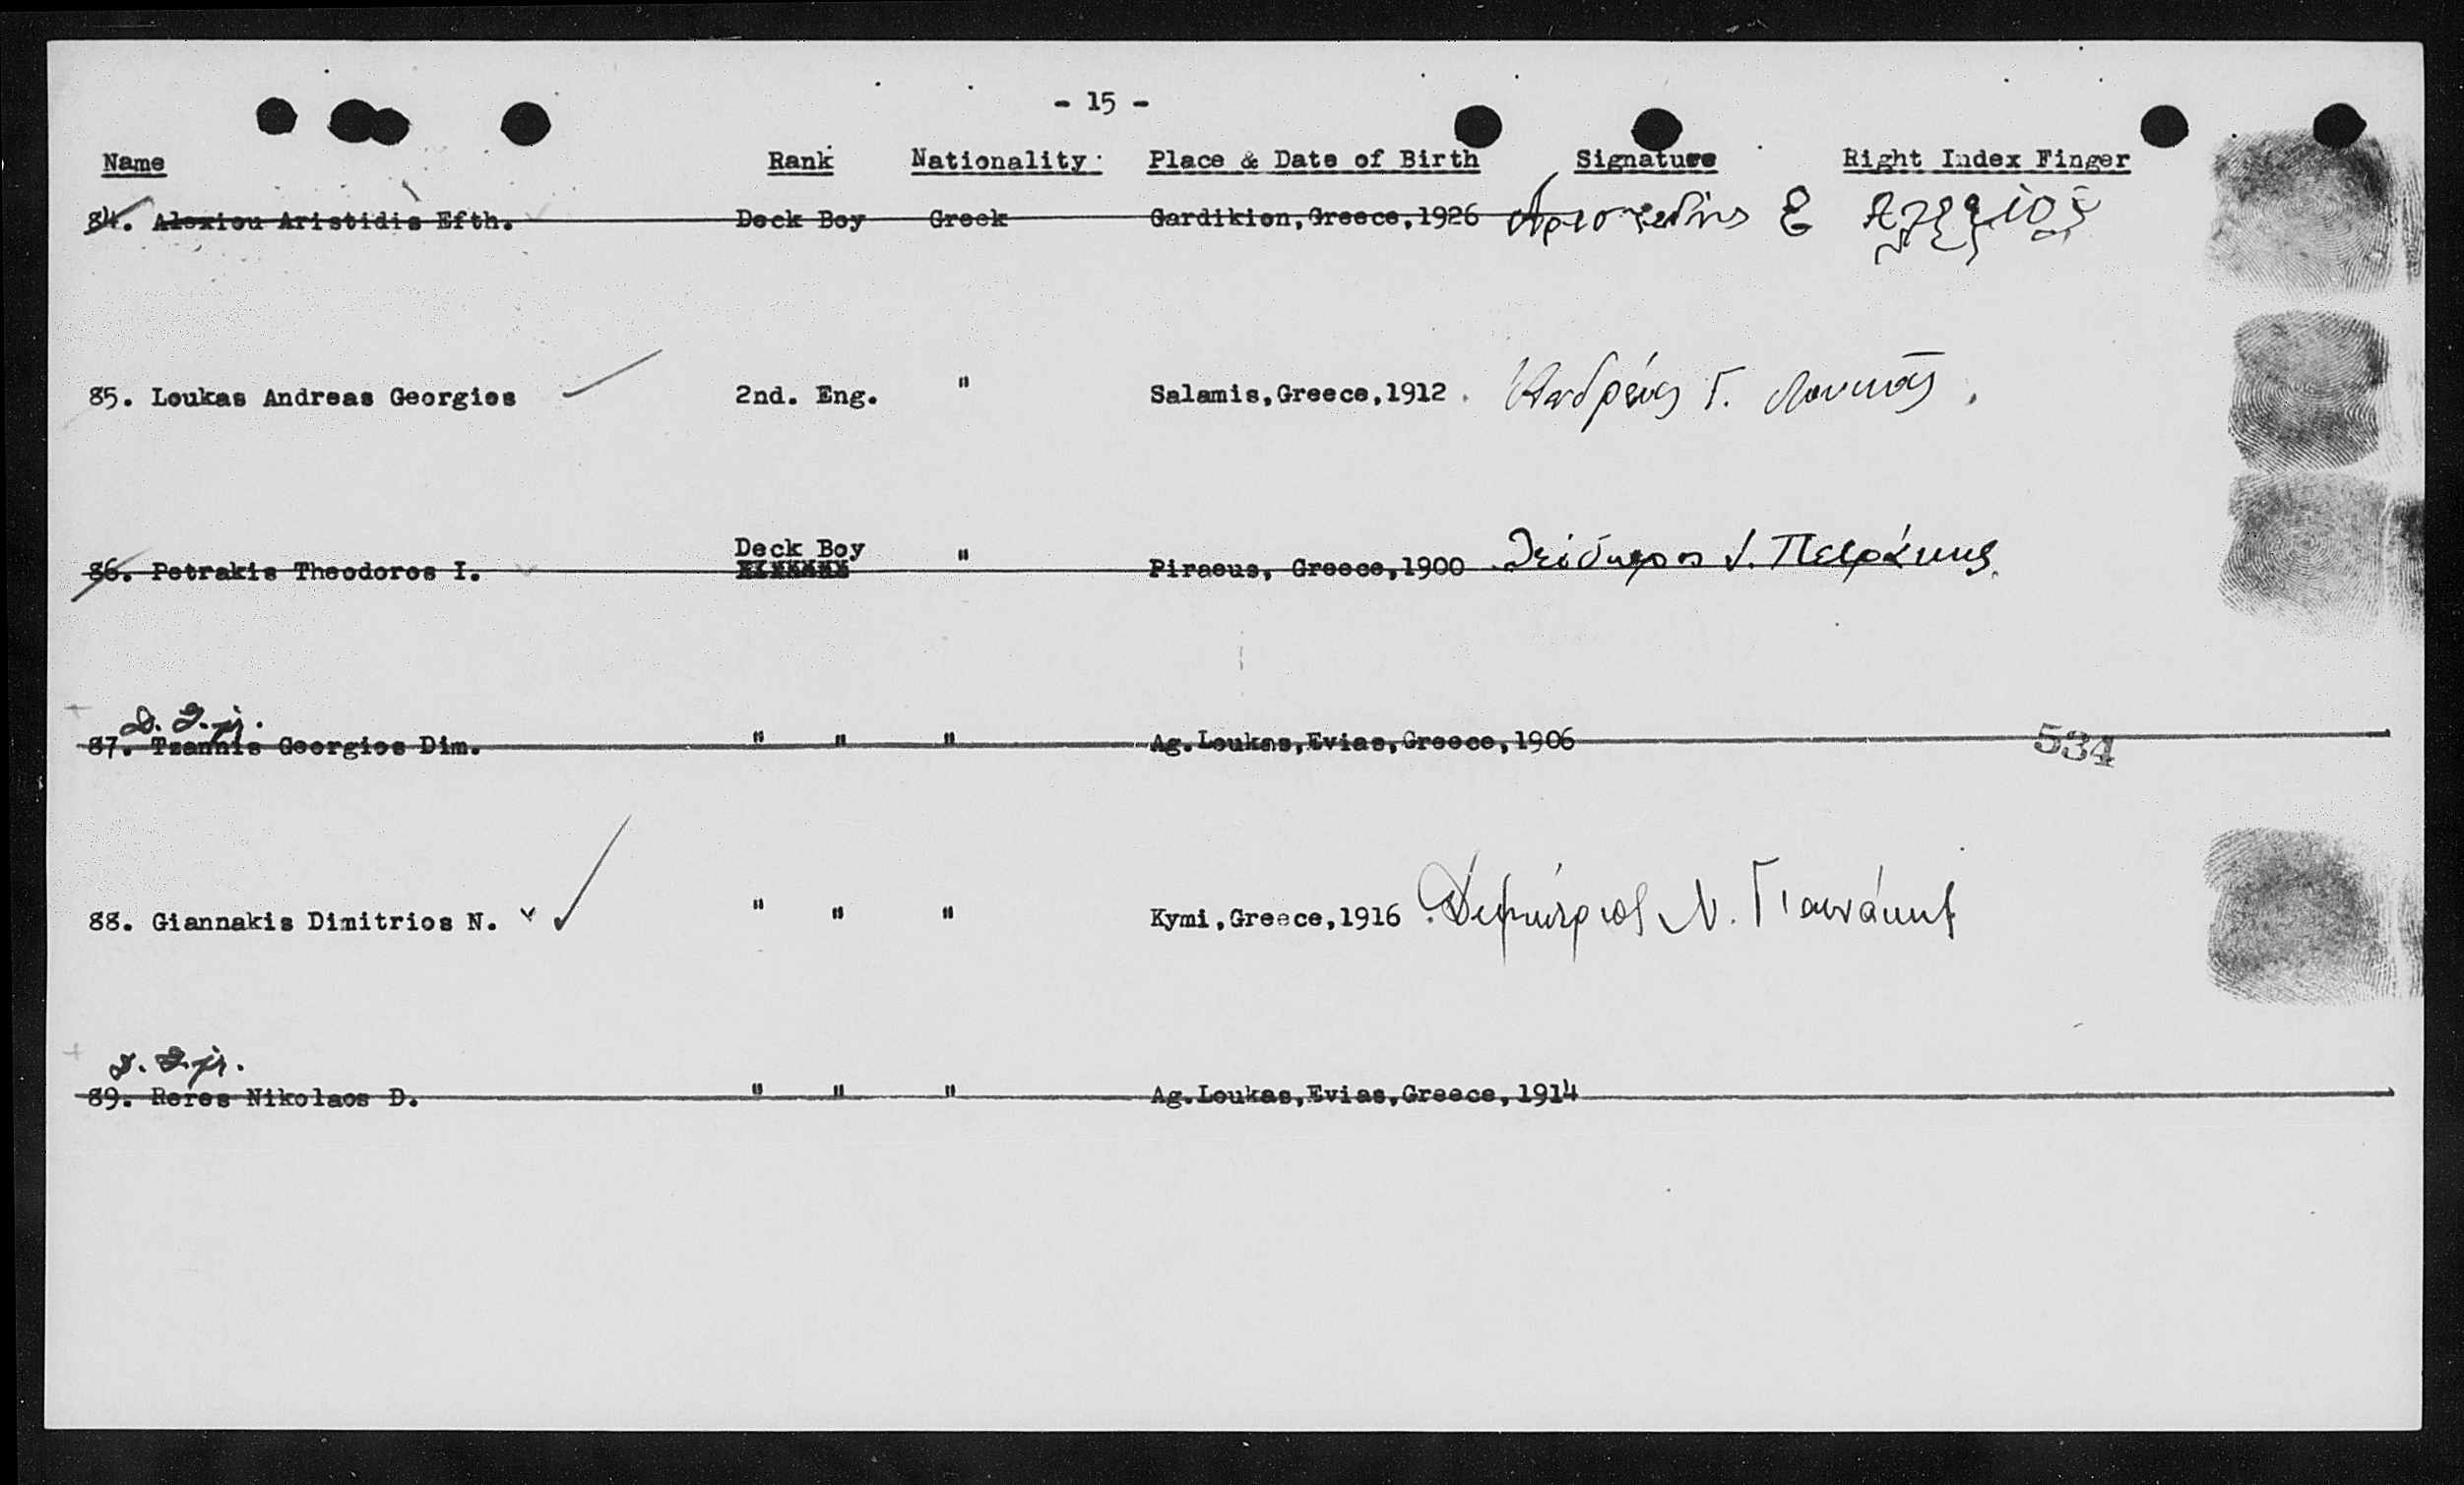 - 15 -
Name Rank Nationality Place & Date of Birth Signature Right Index Finger
84. Alexiou Aristidis Efth. Deck Boy Greek Gardikion, Greece, 1926 Αριστείδης Ε Αλεξίου
85. Loukas Andreas Georgios 2nd. Eng. " Salamis, Greece, 1912. Ανδρέας Γ. Λουκάς.
Deck Boy
86. Petrakis Theodoros I. " Piraeus, Greece, 1900 Θεόδωρος Ι. Πετράκης
D. I. jr.
87. Tzannis Georgios Dim. " " " Ag. Loukas, Evias, Greece, 1906 534
88. Giannakis Dimitrios N. " " " Kymi, Greece, 1916 Δημήτριος Ν. Γιαννάκης
D. I. jr.
89. Reres Nikolaos D. " " " Ag. Loukas, Evias, Greece, 1914